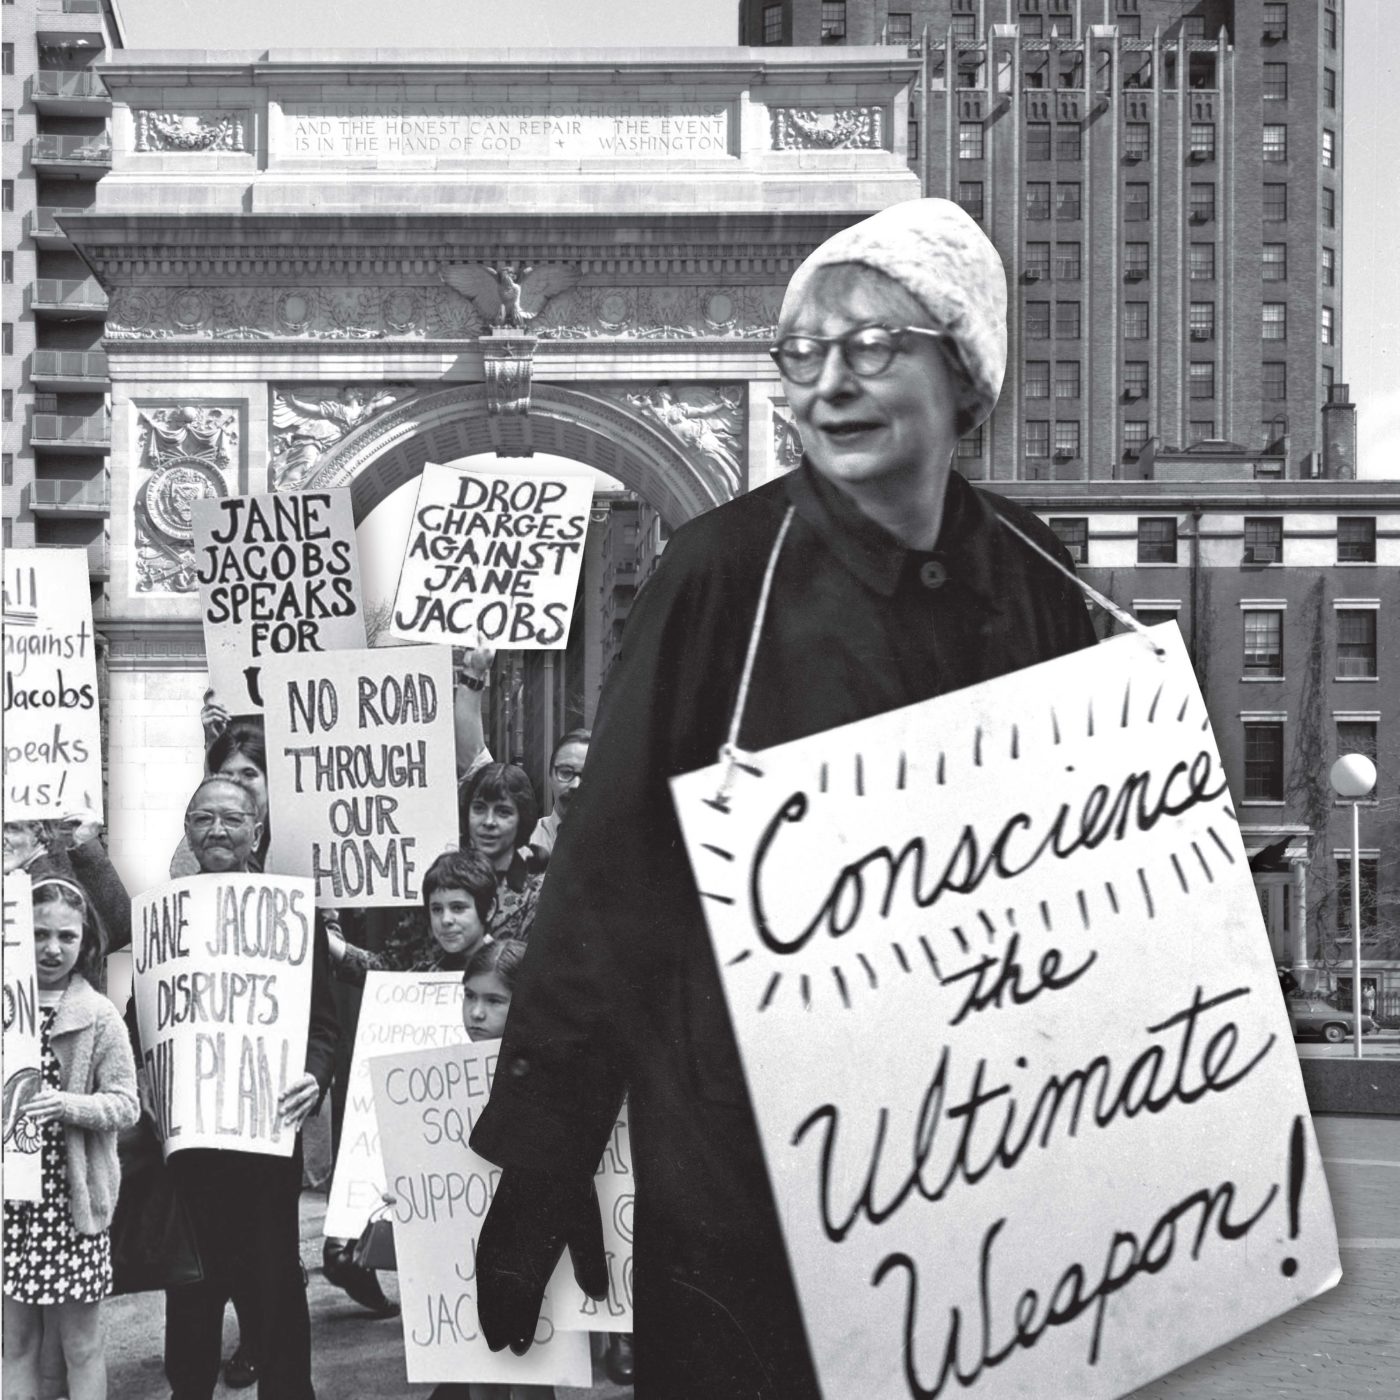 LET US RAISE A STANDARD TO WHICH THE WISE
AND THE HONEST CAN REPAIR THE EVENT
IS IN THE HAND OF GOD WASHINGTON
JANE
JACOBS
SPEAKS
FOR
DROP
CHARGES
AGAINST
JANE
JACOBS
against
Jacobs
us!
NO ROAD
THROUGH
OUR
HOME
JANE JACOBS
DISRUPTS
PLAN
COOPER
SUPPORTS
COOPE
SQU
SUPPO
J
JAC S
Conscience
the
Ultimate
Weapon!